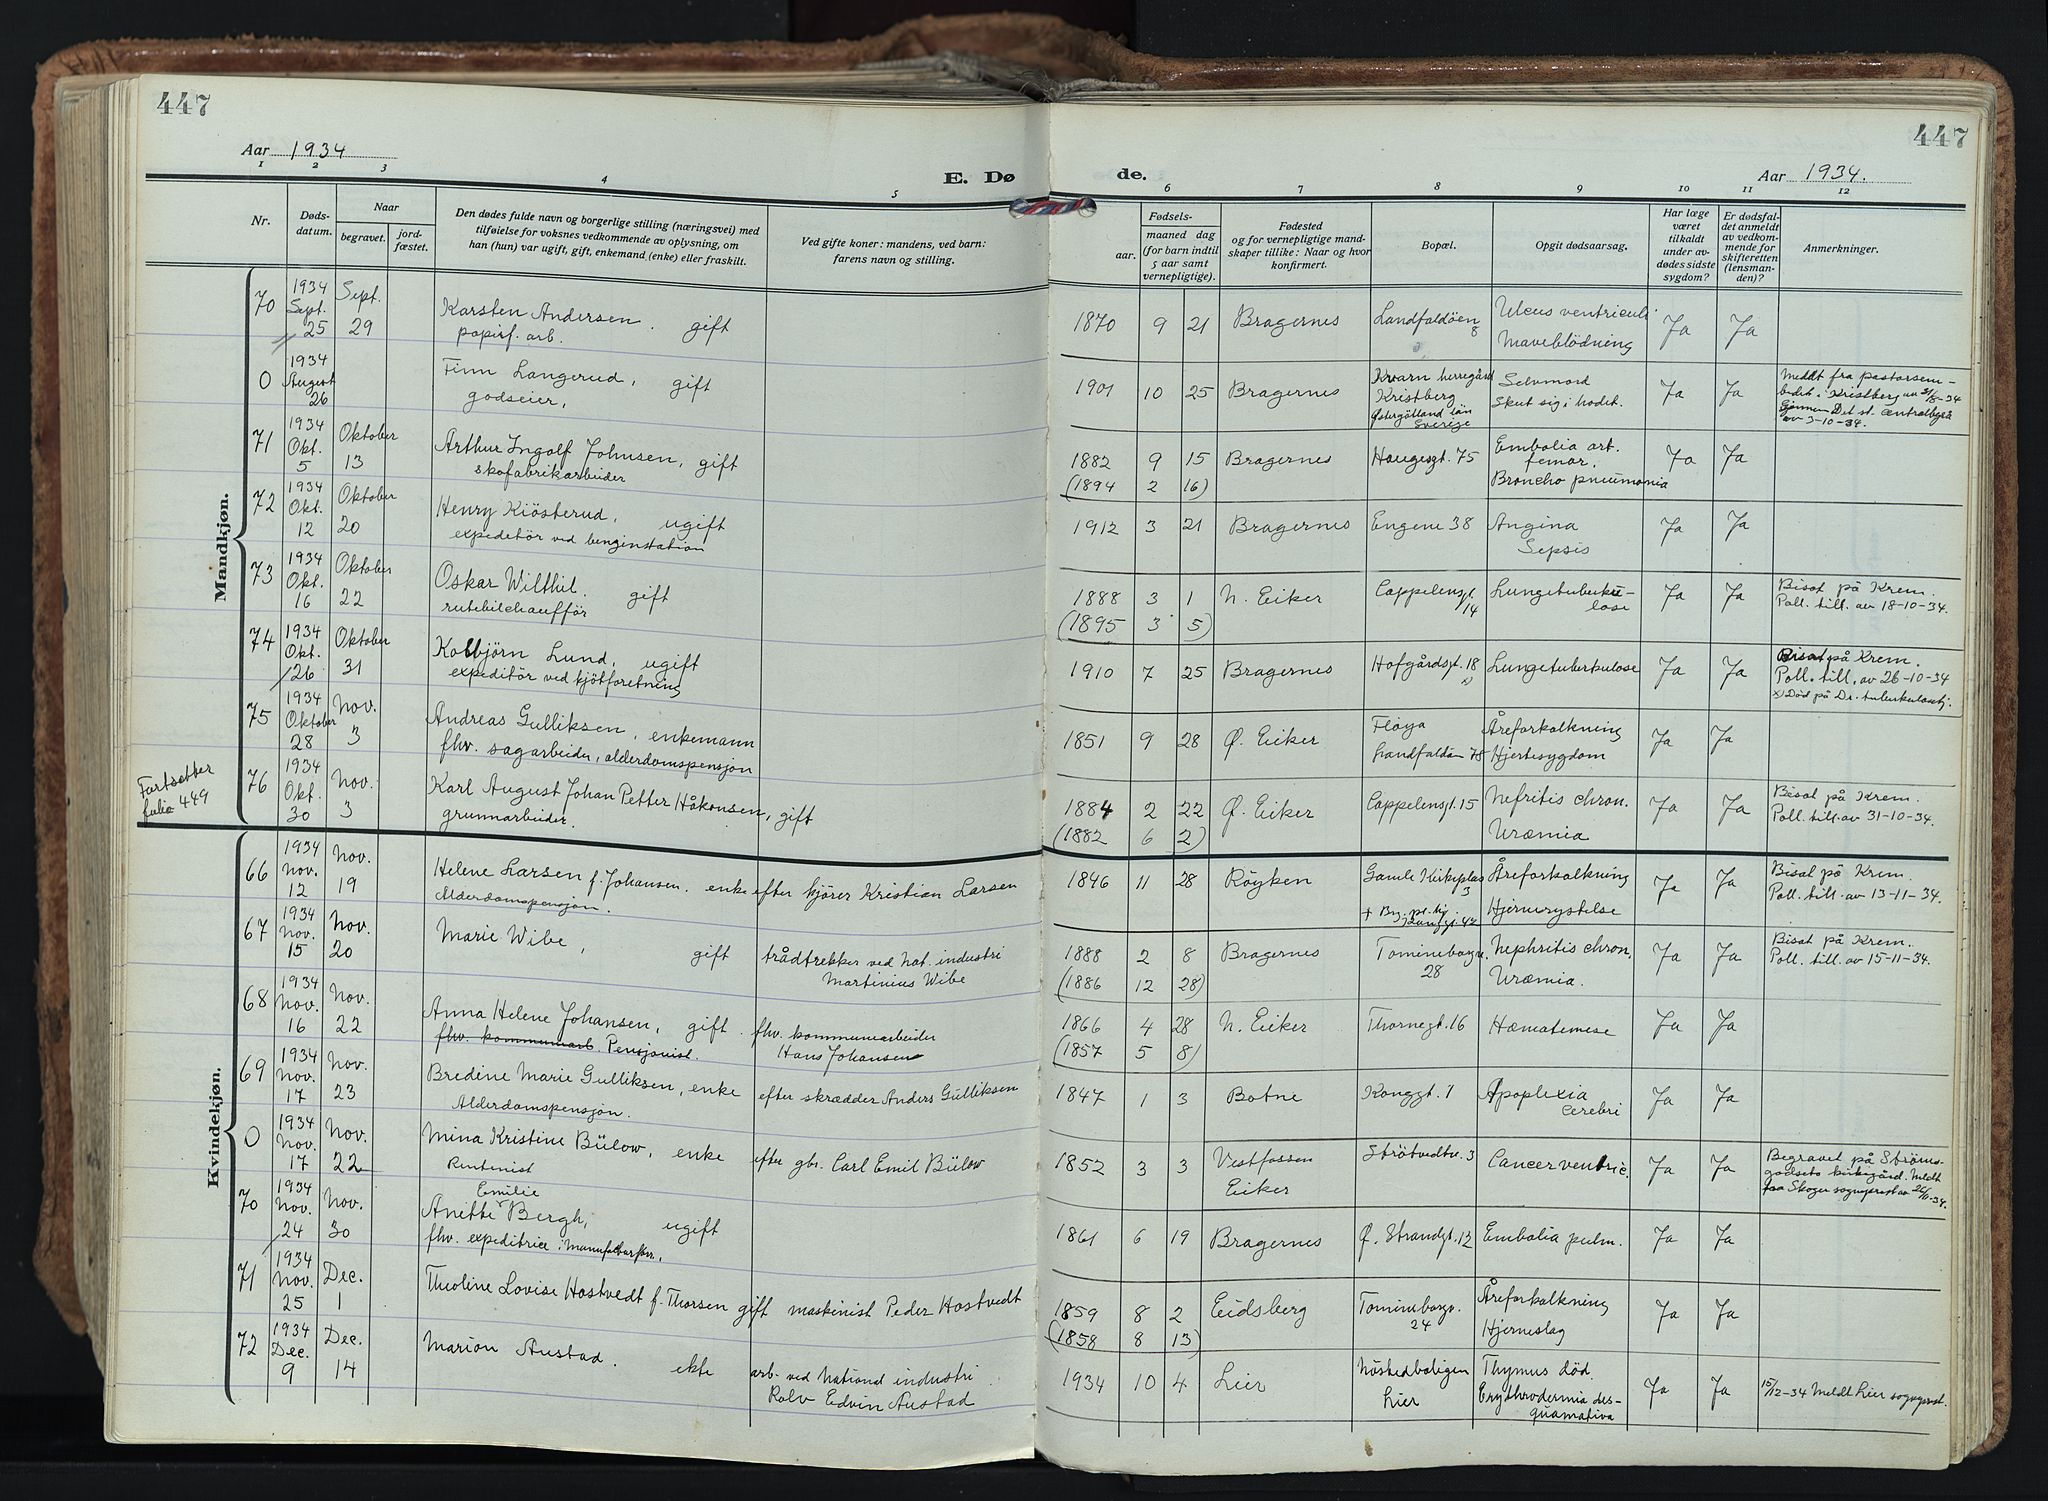 447
Aar 1934
E. Dø
1 2 3 4 5
Nr.
Døds-
datum.
Naar
begravet.
jord-
fæstet.
Den dødes fulde navn og borgerlige stilling (næringsvei) med
tilføielse for voksnes vedkommende av oplysning, om
han (hun) var ugift, gift, enkemand (enke) eller fraskilt.
Ved gifte koner: mandens, ved barn:
farens navn og stilling.
Mandkjøn.
70 1934 Sept. 25 Sept. 29
Karsten Andersen. gift
papirf. arb.
0 1934 August 26
Finn Langerud, gift
godseier,
71 1934 Okt. 5 Oktober 13
Arthur Ingolf Johnsen, gift
skofabrikarbeider
72 1934 Okt. 12 Oktober 20
Henry Kiösterud, ugift
expeditör ved benzinstation
73 1934 Okt. 16 Oktober 22
Oskar Wilthil. gift
rutebilchaufför
74 1934 Okt. 26 Oktober 31
Kolbjörn Lund, ugift
expeditör ved kjötforretning
75 1934 Oktober 28 Nov. 3
Andreas Gulliksen, enkemann
fhv. sagarbeider, alderdomspensjon
76 1934 Okt. 30 Nov. 3
Karl August Johan Petter Håkonsen, gift
grunnarbeider.
Fortsetter
folio 449
Kvindekjøn.
66 1934 Nov. 12 Nov. 19
Helene Larsen f. Johansen. enke efter kjører Kristian Larsen
Alderdomspensjon.
67 1934 Nov. 15 Nov. 20
Marie Wibe, gift trådtrekker ved Nat. industri
Martinius Wibe
68 1934 Nov. 16 Nov. 22
Anna Helene Johansen, gift. fhv. kommunearbeider
fhv. kommunearb. Pensjonist. Hans Johansen
69 1934 Nov. 17 Nov. 23
Bredine Marie Gulliksen, enke efter skrædder Anders Gulliksen
Alderdomspensjon.
0 1934 Nov. 17 Nov. 22
Mina Kristine Bülow, enke efter gbr. Carl Emil Bülow
Rentenist
70 1934 Nov. 24 Nov. 30
Emilie
Anette Bergh, ugift
fhv. expeditrice i Manufakturforr.
71 1934 Nov. 25 Dec. 1
Theoline Lovise Hostvedt f. Thorsen gift maskinist Peder Hostvedt
72 1934 Dec. 9 Dec. 14
Marion Austad. ekte arb. ved National industri
Rolv Edvin Austad
447
de.
Aar 1934.
6 7 8 9 10 11 12
Fødsels-
aar.
maaned dag
(for barn indtil
5 aar samt
vernepligtige).
Fødested
og for vernepligtige mand-
skaper tillike: Naar og hvor
konfirmert.
Bopæl.
Opgit dødsaarsag.
Har læge
været
tilkaldt
under av-
dødes sidste
sygdom?
Er dødsfal-
det anmeldt
av vedkom-
mende for
skifteretten
(lensman-
den)?
Anmerkninger.
1870 9 21 Bragernes Landfaldöen 8 Ulcus ventriculi Ja Ja
Maveblödning
1901 10 25 Bragernes Kvarn herregård
Kristberg
Östergötland län
Sverige
Selvmord
Skut sig i hodet. Ja Ja
Meddt fra pastorsem-
bedet i Kristberg av 31/8-34
Gjennem Det st. Centralbyrå
av 3-10-34.
1882 9 15 Bragernes Haugesgt. 75 Embolia art.
femor.
Broncho pneumonia Ja Ja
(1894 2 16)
1912 3 21 Bragernes Engene 38 Angina
Sepsis Ja Ja
1888 3 1 N. Eiker Cappelensgt. 14 Lungetuberku-
lose Ja Ja
Bisat på Krem.
Poll. till. av 18-10-34.
(1895 3 5)
1910 7 25 Bragernes Hofgårdsgt. 18 x) Lungetuberkulose Ja Ja
Bisat på Krem.
Poll. till. av 26-10-34
x) Död på Dr. tuberkulosehj.
1851 9 28 Ø. Eiker Fløya
Landfaldön 78
Åreforkalkning
Hjertesygdom Ja Ja
1884 2 22 Ø. Eiker Cappelensgt. 15 Nefritis chron.
Uræmia Ja Ja
Bisat på Krem.
Poll. till. av 31-10-34.
(1882 6 2)
1846 11 28 Röyken Gamle Kirkeplas 3
Åreforkalkning
Hjernerystelse Ja Ja
Bisat på Krem.
Poll. till. av 13-11-34.
1888 2 8 Bragernes Tomineborgv.
28
Nephritis chron,
Uræmia. Ja Ja
Bisat på Krem.
Poll. till. av 15-11-34.
(1886 12 28)
1866 4 28 N. Eiker Thornegt. 16 Hæmatemese Ja Ja
(1857 5 8)
1847 1 3 Botne Konggt. 1 Apoplexia
cerebri Ja Ja
1852 3 3 Vestfossen
Eiker
Strötvedtv. 3 Cancer ventric. Ja Ja
Begravet på Ströms-
godsets kirkegård. Meldt
fra Skoger sogneprest av 26/11-34.
1861 6 19 Bragernes Ø. Strandgt. 12 Embolia pulm. Ja Ja
1859 8 2 Eidsberg Tomineborgv.
24
Åreforkalkning
Hjerneslag Ja Ja
(1858 8 13)
1934 10 4 Lier Nöstedboligen
Lier
Thymus död.
Erythrodermia des-
quamativa Ja Ja
15/12-34 Meldt Lier sogneprest.